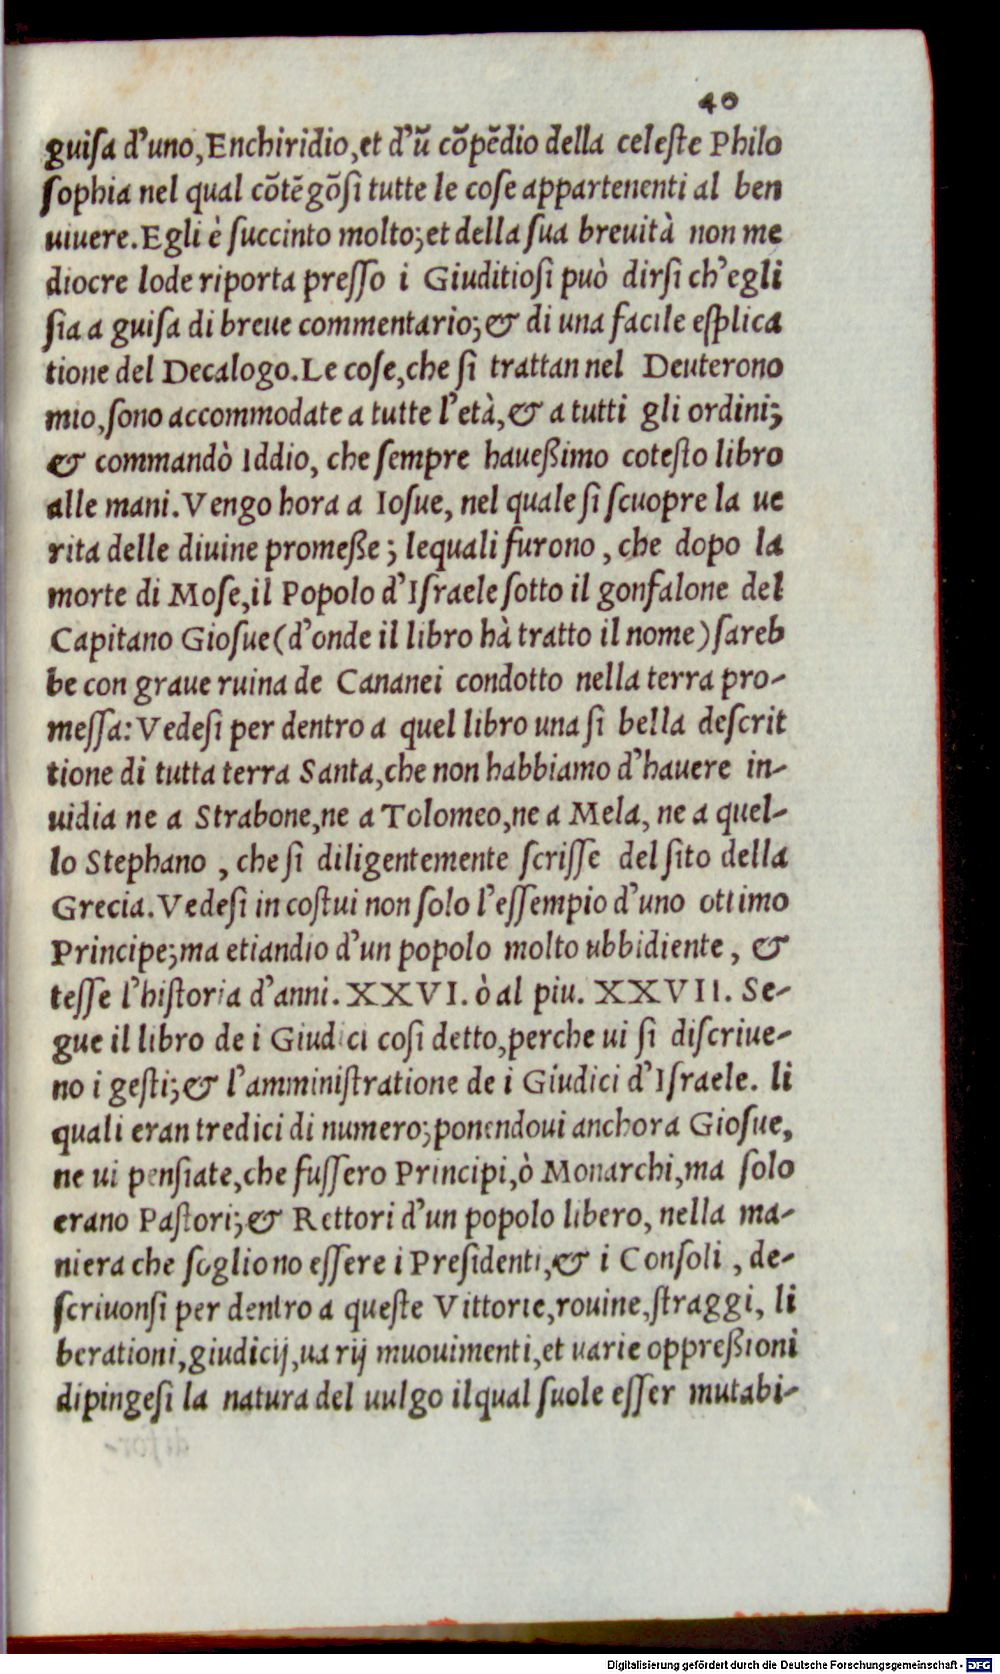 40
guiſa d'uno, Enchiridio, et d'ũ cõpẽdio della celeſte Philo
ſophia nel qual cõtẽgõſi tutte le coſe appartenenti al ben
uiuere. Egli è ſuccinto molto; et della ſua breuità non me
diocre lode riporta preſſo i Giuditioſi può dirſi ch'egli
ſia a guiſa di breue commentario; & di una facile eſplica
tione del Decalogo. Le coſe, che ſi trattan nel Deuterono
mio, ſono accommodate a tutte l'età, & a tutti gli ordini;
& commandò Iddio, che ſempre haueßimo coteſto libro
alle mani. Vengo hora a Ioſue, nel quale ſi ſcuopre la ue
rita delle diuine promeße; lequali furono, che dopo la
morte di Moſe, il Popolo d'Iſraele ſotto il gonfalone del
Capitano Gioſue (d'onde il libro hà tratto il nome) ſareb
be con graue ruina de Cananei condotto nella terra pro-
meſſa: Vedeſi per dentro a quel libro una ſi bella deſcrit
tione di tutta terra Santa, che non habbiamo d'hauere in-
uidia ne a Strabone, ne a Tolomeo, ne a Mela, ne a quel-
lo Stephano, che ſi diligentemente ſcriſſe del ſito della
Grecia. Vedeſi in coſtui non ſolo l'eſſempio d'uno ottimo
Principe; ma etiandio d'un popolo molto ubbidiente, &
teſſe l'hiſtoria d'anni. XXVI. ò al piu. XXVII. Se-
gue il libro de i Giudici coſi detto, perche ui ſi diſcriue-
no i geſti; & l'amminiſtratione de i Giudici d'Iſraele. li
quali eran tredici di numero; ponendoui anchora Gioſue,
ne ui penſiate, che fuſſero Principi, ò Monarchi, ma ſolo
erano Paſtori; & Rettori d'un popolo libero, nella ma-
niera che ſogliono eſſere i Preſidenti, & i Conſoli, de-
ſcriuonſi per dentro a queſte Vittorie, rouine, ſtraggi, li
berationi, giudicij, uarij muouimenti, et uarie oppreßioni
dipingeſi la natura del uulgo ilqual ſuole eſſer mutabi-
Digitalisierung gefördert durch die Deutsche Forschungsgemeinschaft - DFG